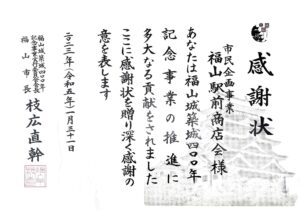 感謝状
市民企画事業
福山駅前商店会様
あなたは福山城築城四〇〇年
記念事業の推進に
多大なる貢献をされました
ここに感謝状を贈り深く感謝の
意を表します
二〇二三年(令和五年)一月三十一日
福山城築城四〇〇年
記念事業実行委員会会長
福山市長
枝広直幹